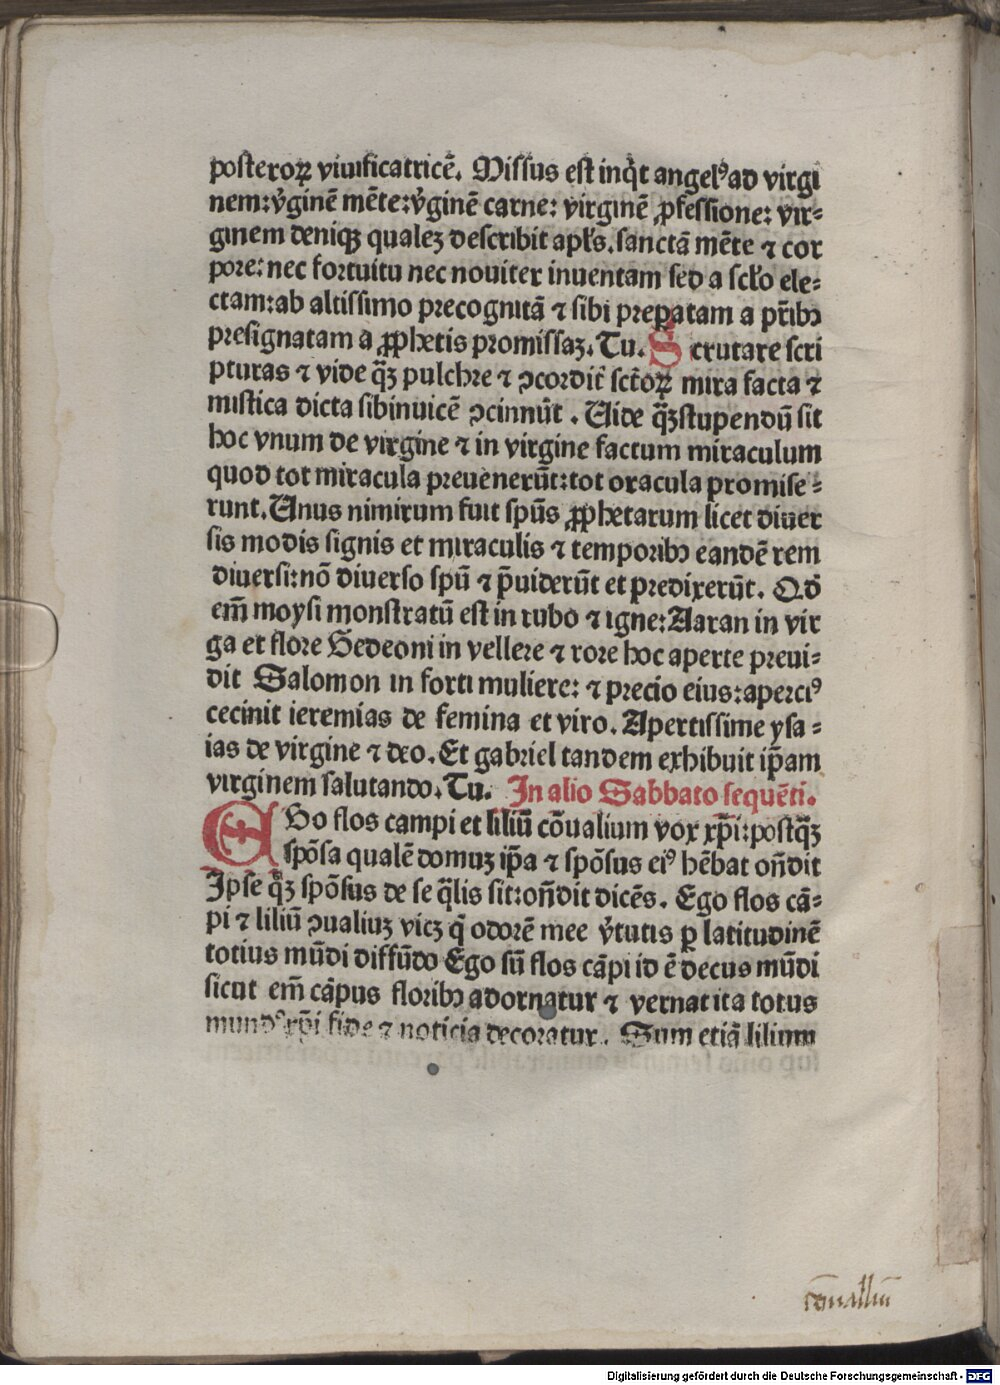 posteroꝝ viuificatricē. Missus est inq̇t angelꝰ ad virgi
nem: v̓ginē mēte: v̓ginē carne: virginē ꝓfessione: vir⸗
ginem deniqꝫ qualeꝫ describit apl̓s. sanctā mēte ⁊ cor
pore: nec fortuitu nec nouiter inuentam sed a scl̓o ele⸗
ctam: ab altissimo precognitā ⁊ sibi prepatam a pr̄ibꝰ
presignatam a ꝓphetis promissaꝫ. Tu. Scrutare scri
pturas ⁊ vide q̈ꝫ pulchre ⁊ ꝯcordit̓ sct̓oꝝ mira facta ⁊
mistica dicta sibinuicē ꝯcinnūt. Uide q̈ꝫ stupendū sit
hoc vnum de virgine ⁊ in virgine factum miraculum
quod tot miracula preuenerūt: tot oracula promise⸗
runt. Unus nimirum fuit spūs ꝓphetarum licet diuer
sis modis signis et miraculis ⁊ temporibꝰ eandē rem
diuersi: nō diuerso spū ⁊ p̄uiderūt et predixerūt. Qd̓
em̄ moysi monstratū est in rubo ⁊ igne: Aaran in vir
ga et flore Gedeoni in vellere ⁊ rore hoc aperte preui⸗
dit Salomon in forti muliere: ⁊ precio eius: aperciꝰ
cecinit ieremias de femina et viro. Apertissime ysa⸗
ias de virgine ⁊ deo. Et gabriel tandem exhibuit ip̄am
virginem salutando. Tu. In alio Sabbato sequēti.
EGo flos campi et liliū cōualium vox xp̄i: postq̈ꝫ
spōsa qualē domuꝫ ip̄a ⁊ spōsus eiꝰ hēbat on̄dit
Ipse q̊ꝫ spōsus de se q̄lis sit: on̄dit dicēs. Ego flos cā⸗
pi ⁊ liliū ꝯualiuꝫ vicꝫ q̇ odorē mee v̓tutis ꝑ latitudinē
totius mūdi diffūdo Ego sū flos cāpi id ē decus mūdi
sicut em̄ cāpus floribꝰ adornatur ⁊ vernat ita totus
mundꝰ xp̄i fide ⁊ noticia decoratur. Sum etiā lilium
cōnualliū
Digitalisierung gefördert durch die Deutsche Forschungsgemeinschaft - DFG